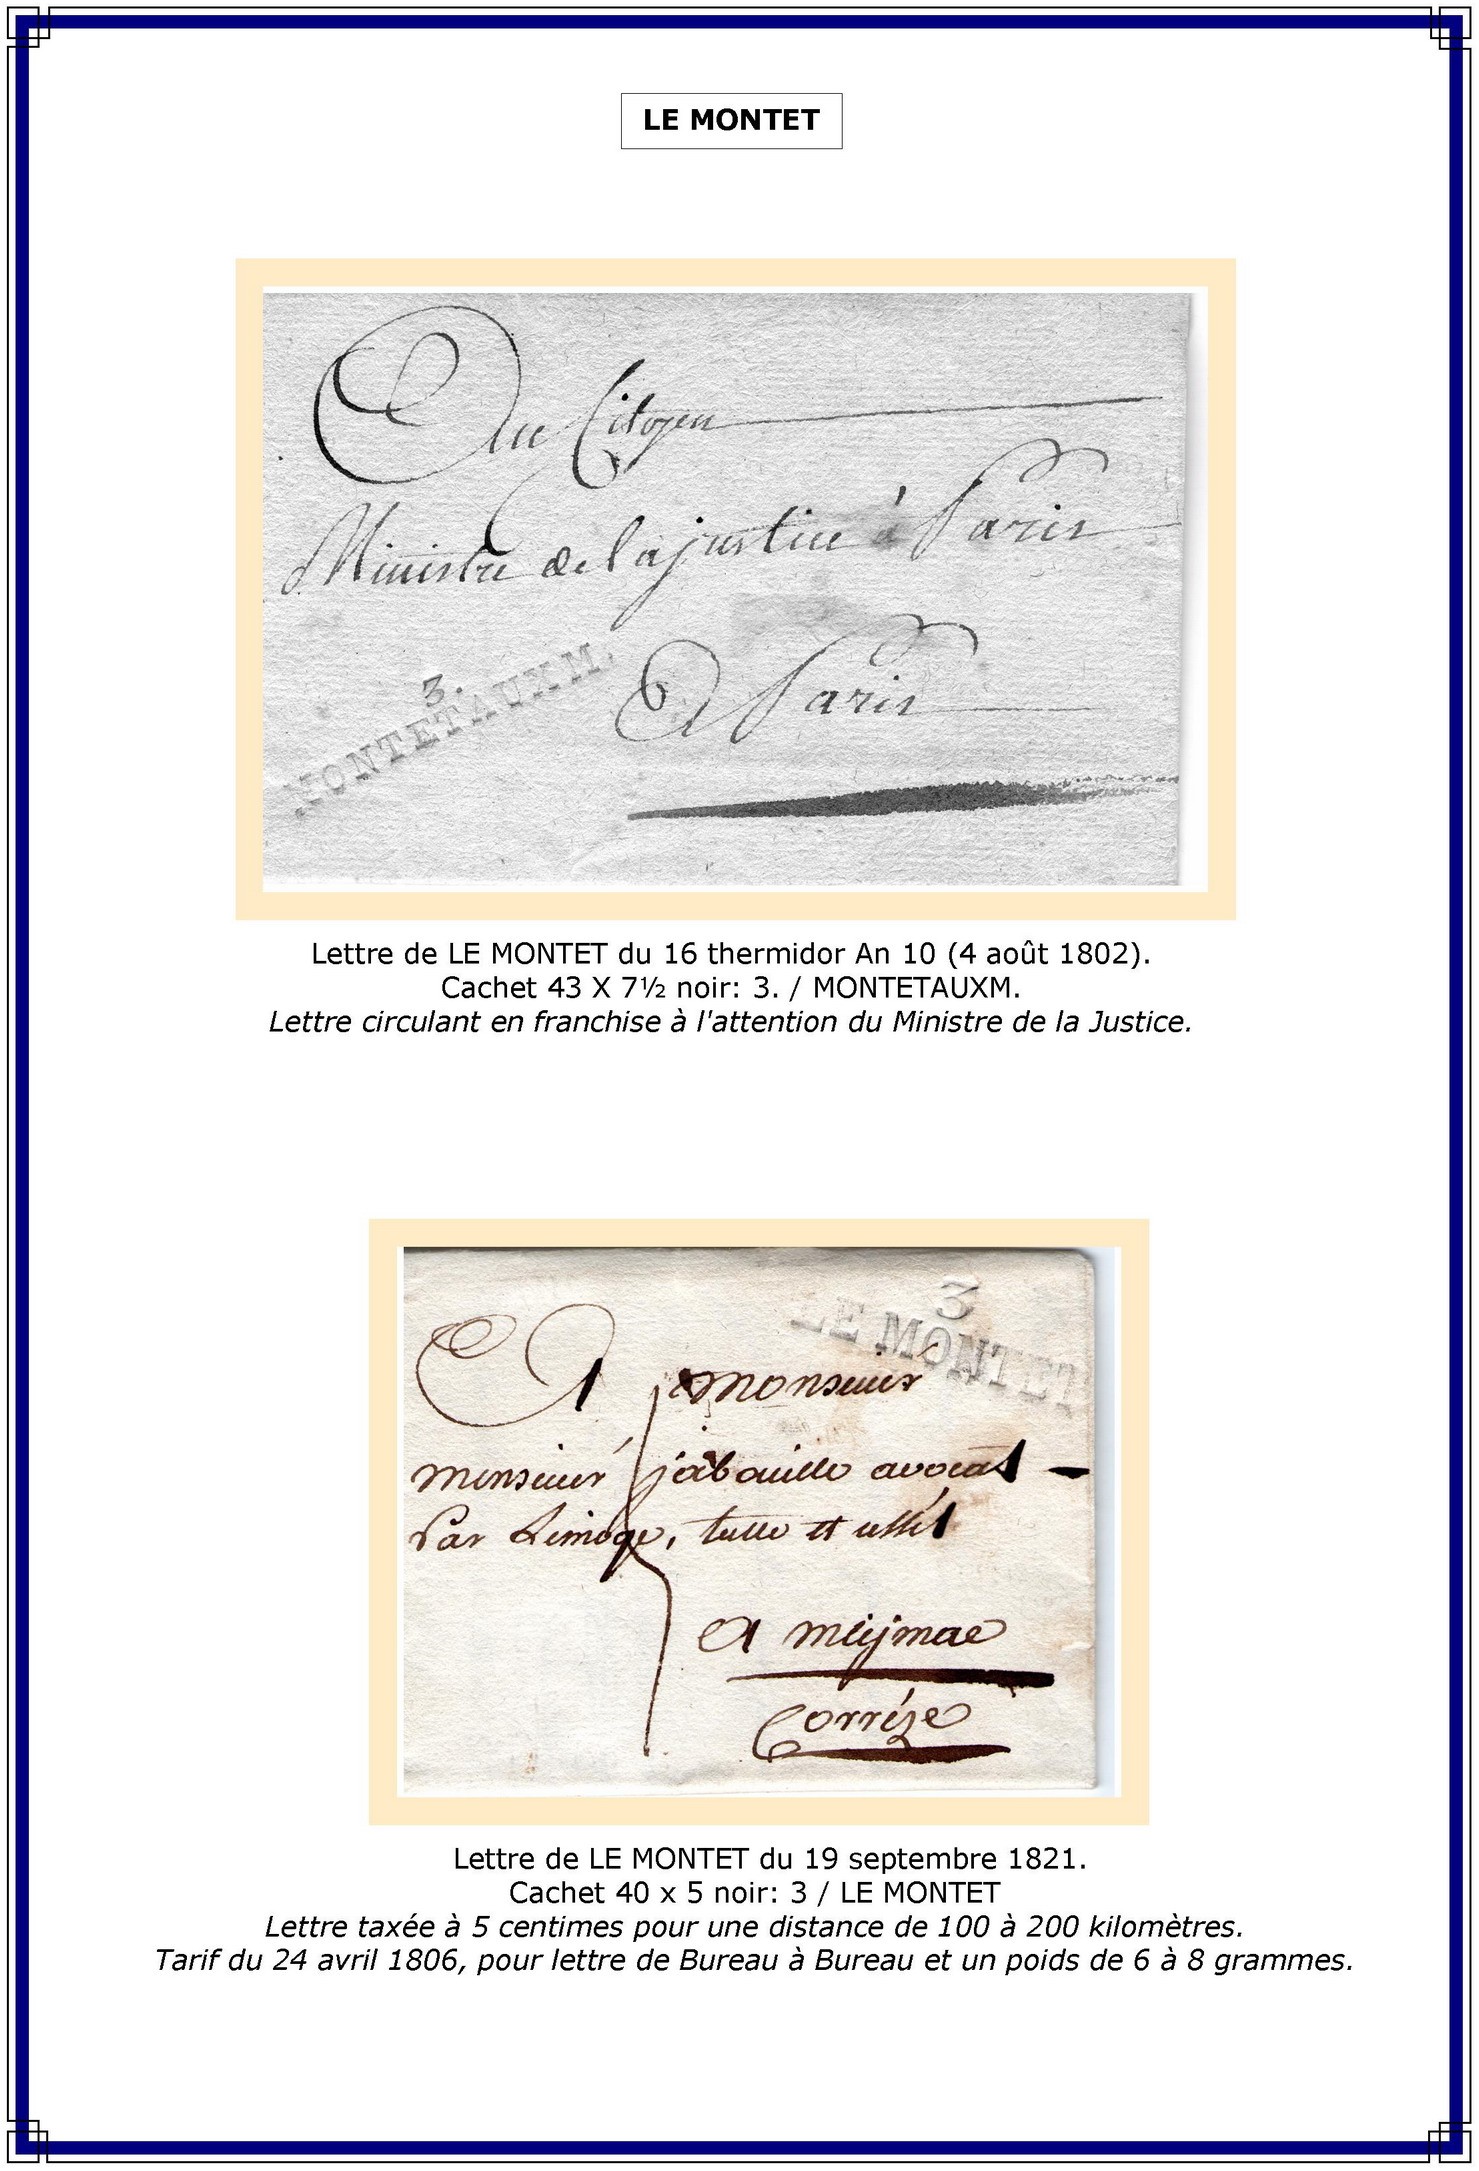 LE MONTET
Au Citoyen
Ministre de la justice à Paris
3.
MONTETAUXM.
A Paris
Lettre de LE MONTET du 16 thermidor An 10 (4 août 1802).
Cachet 43 X 7½ noir: 3. / MONTETAUXM.
Lettre circulant en franchise à l'attention du Ministre de la Justice.
3
LE MONTET
A monsieur
monsieur jabouille avocat
5
Par Limoge, tulle et ussel
A meijmac
Corréze
Lettre de LE MONTET du 19 septembre 1821.
Cachet 40 x 5 noir: 3 / LE MONTET
Lettre taxée à 5 centimes pour une distance de 100 à 200 kilomètres.
Tarif du 24 avril 1806, pour lettre de Bureau à Bureau et un poids de 6 à 8 grammes.